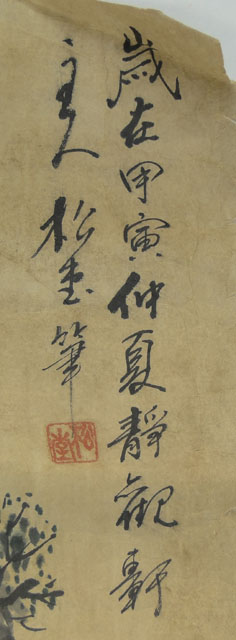 歲在甲寅仲夏靜觀軒
主人松堂筆
松堂